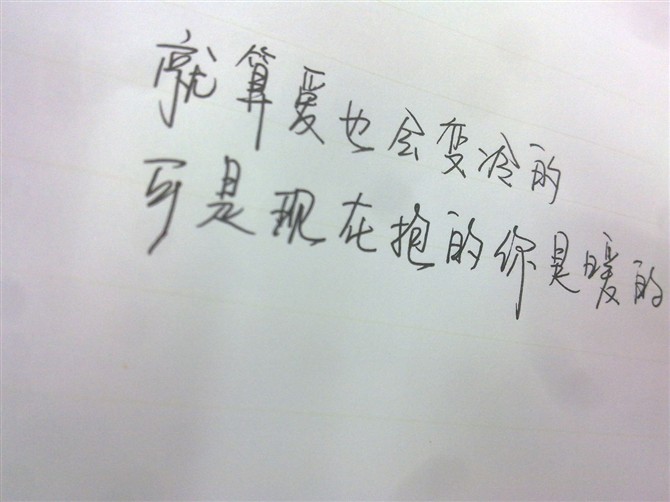 就算爱也会变冷的
可是现在抱的你是暖的